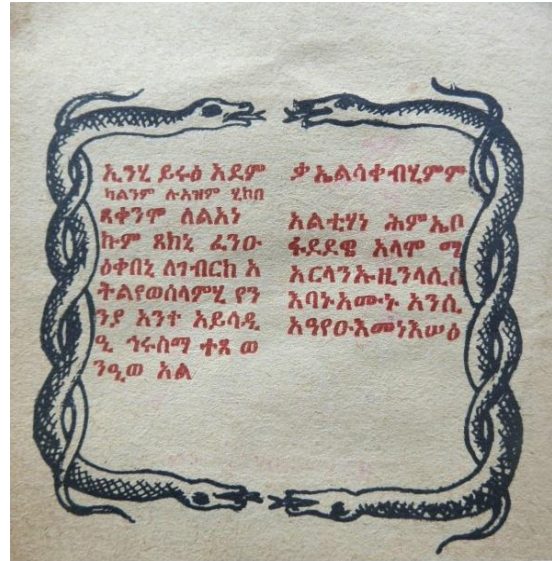 ኢንሂ ይሩዕ አደም
ካልንም ሉአዝም ሂኮበ
ጻቀንሞ ለልአነ
ኩም ጸክኒ ፈንዑ
ዕቀበኒ ለገብርከ አ
ትልየወሰላምሂ የን
ንያ አንተ አይሳዲ
ዒ ኅሩስማ ተጸ ወ
ንዒወ አል
ቃ ኤልሳቀብሂምም
አልቲሃነ ሕምኤቦ
ፋደደዌ አላሞ ሚ
አርላንኡዚንላሊስ
እባኑአሙኑ አንሲ
አዓየዑእመነእሠዕ